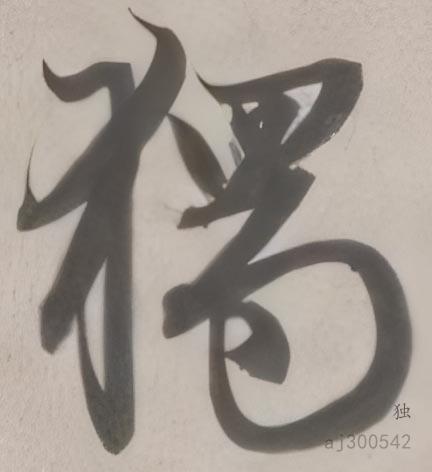 獨
独
aj300542